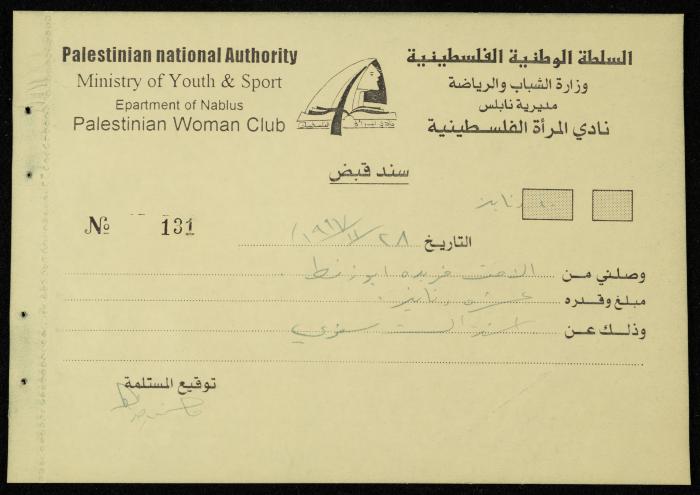 Palestinian national Authority
Ministry of Youth & Sport
Epartment of Nablus
Palestinian Woman Club
السلطة الوطنية الفلسطينية
وزارة الشباب والرياضة
مديرية نابلس
نادي المرأة الفلسطينية
سند قبض
№ 131
التاريخ ٢٨/١١/١٩٩٧
وصلني من الاخت فريده ابو
مبلغ وقدره عشرة دنانير .
وذلك عن سنوي
توقيع المستلمة